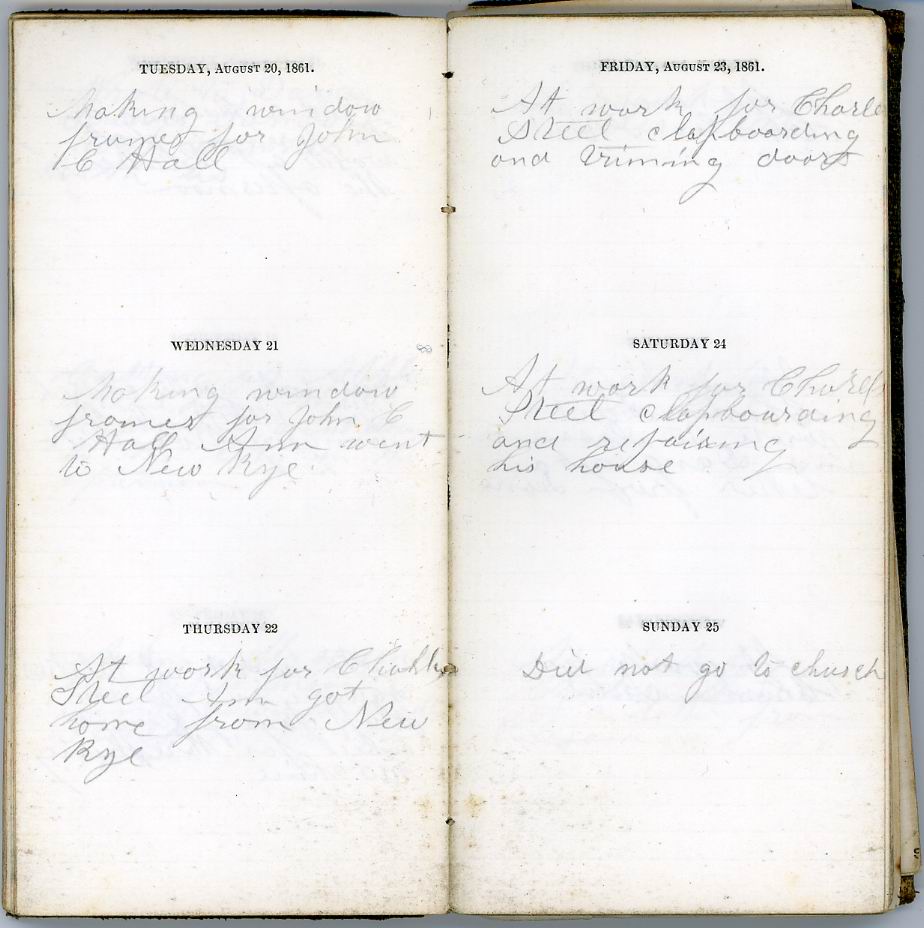 TUESDAY, AUGUST 20, 1861.
Making window
frames for John
C Hall
WEDNESDAY 21
Making window
frames for John C
Hall Ann went
to New Rye
THURSDAY 22
At work for Charles
Steel Ann got
home from New
Rye
FRIDAY, AUGUST 23, 1861.
At work for Charle
Steel clapboarding
and triming doors
SATURDAY 24
At work for Charle
Steel clapboarding
and repairing
his house
SUNDAY 25
Did not go to church